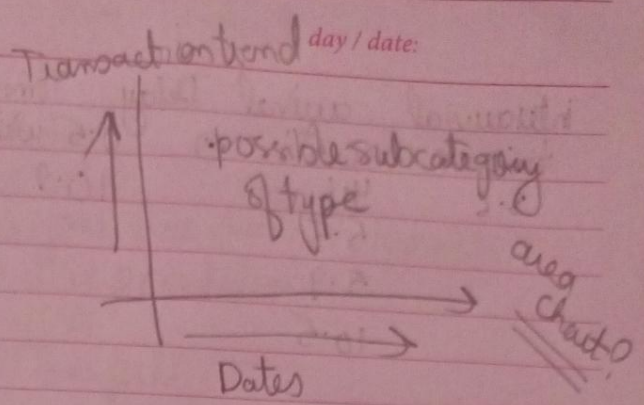 Transaction trend
day / date:
possible subcategory
of type
area
chart?
Dates